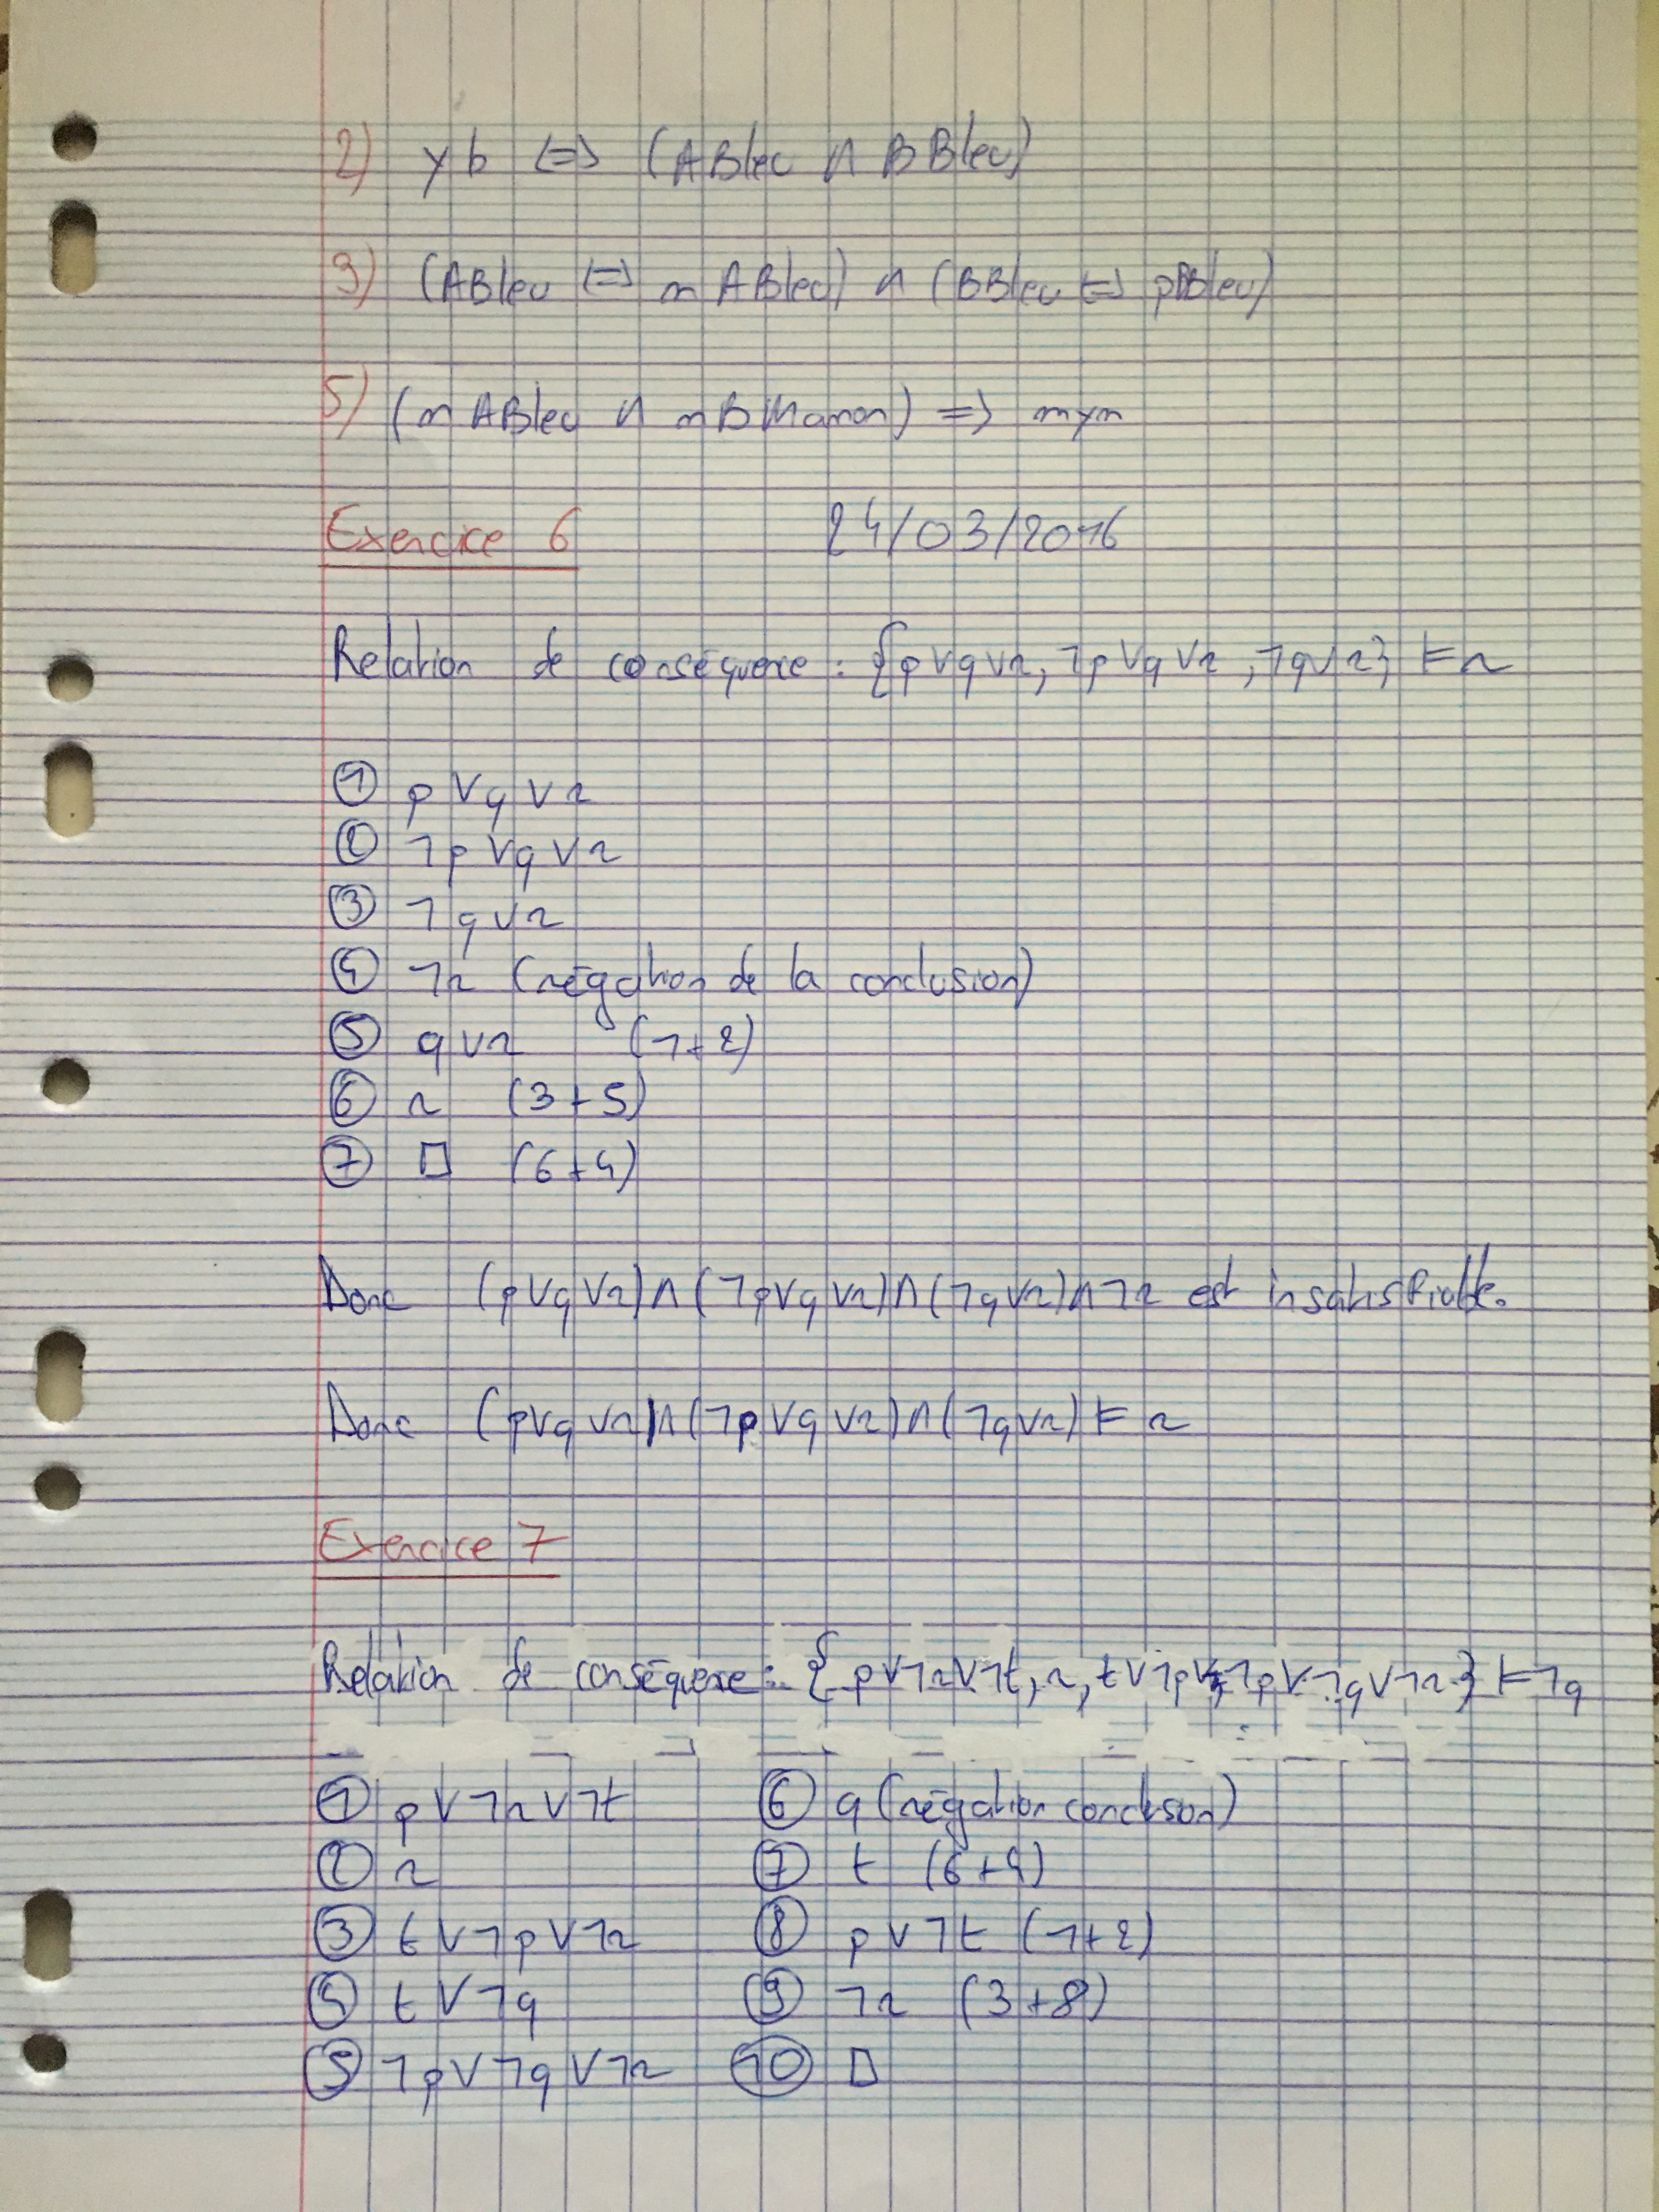 2) yb <=> (ABleu ∧ BBleu)
3) (ABleu <=> mABleu) ∧ (BBleu <=> pBBleu)
5) (mABleu ∧ mBMarron) => mym
Exercice 6 24/03/2016
Relation de conséquence : {p∨q∨r, ¬p∨q∨r, ¬q∨r} ⊨ r
① p∨q∨r
② ¬p∨q∨r
③ ¬q∨r
④ ¬r (négation de la conclusion)
⑤ q∨r (1+2)
⑥ r (3+5)
⑦ □ (6+4)
Donc (p∨q∨r)∧(¬p∨q∨r)∧(¬q∨r)∧¬r est insatisfiable.
Donc (p∨q∨r)∧(¬p∨q∨r)∧(¬q∨r) ⊨ r
Exercice 7
Relation de conséquence : { p∨¬r∨¬t, r, t∨¬p∨ ¬p∨¬q∨¬r } ⊨ ¬q
① p∨¬r∨¬t ⑥ q (négation conclusion)
② r ⑦ t (6+4)
③ t∨¬p∨¬r ⑧ p∨¬t (1+2)
④ t∨¬q ⑨ ¬r (3+8)
⑤ ¬p∨¬q∨¬r ⑩ □